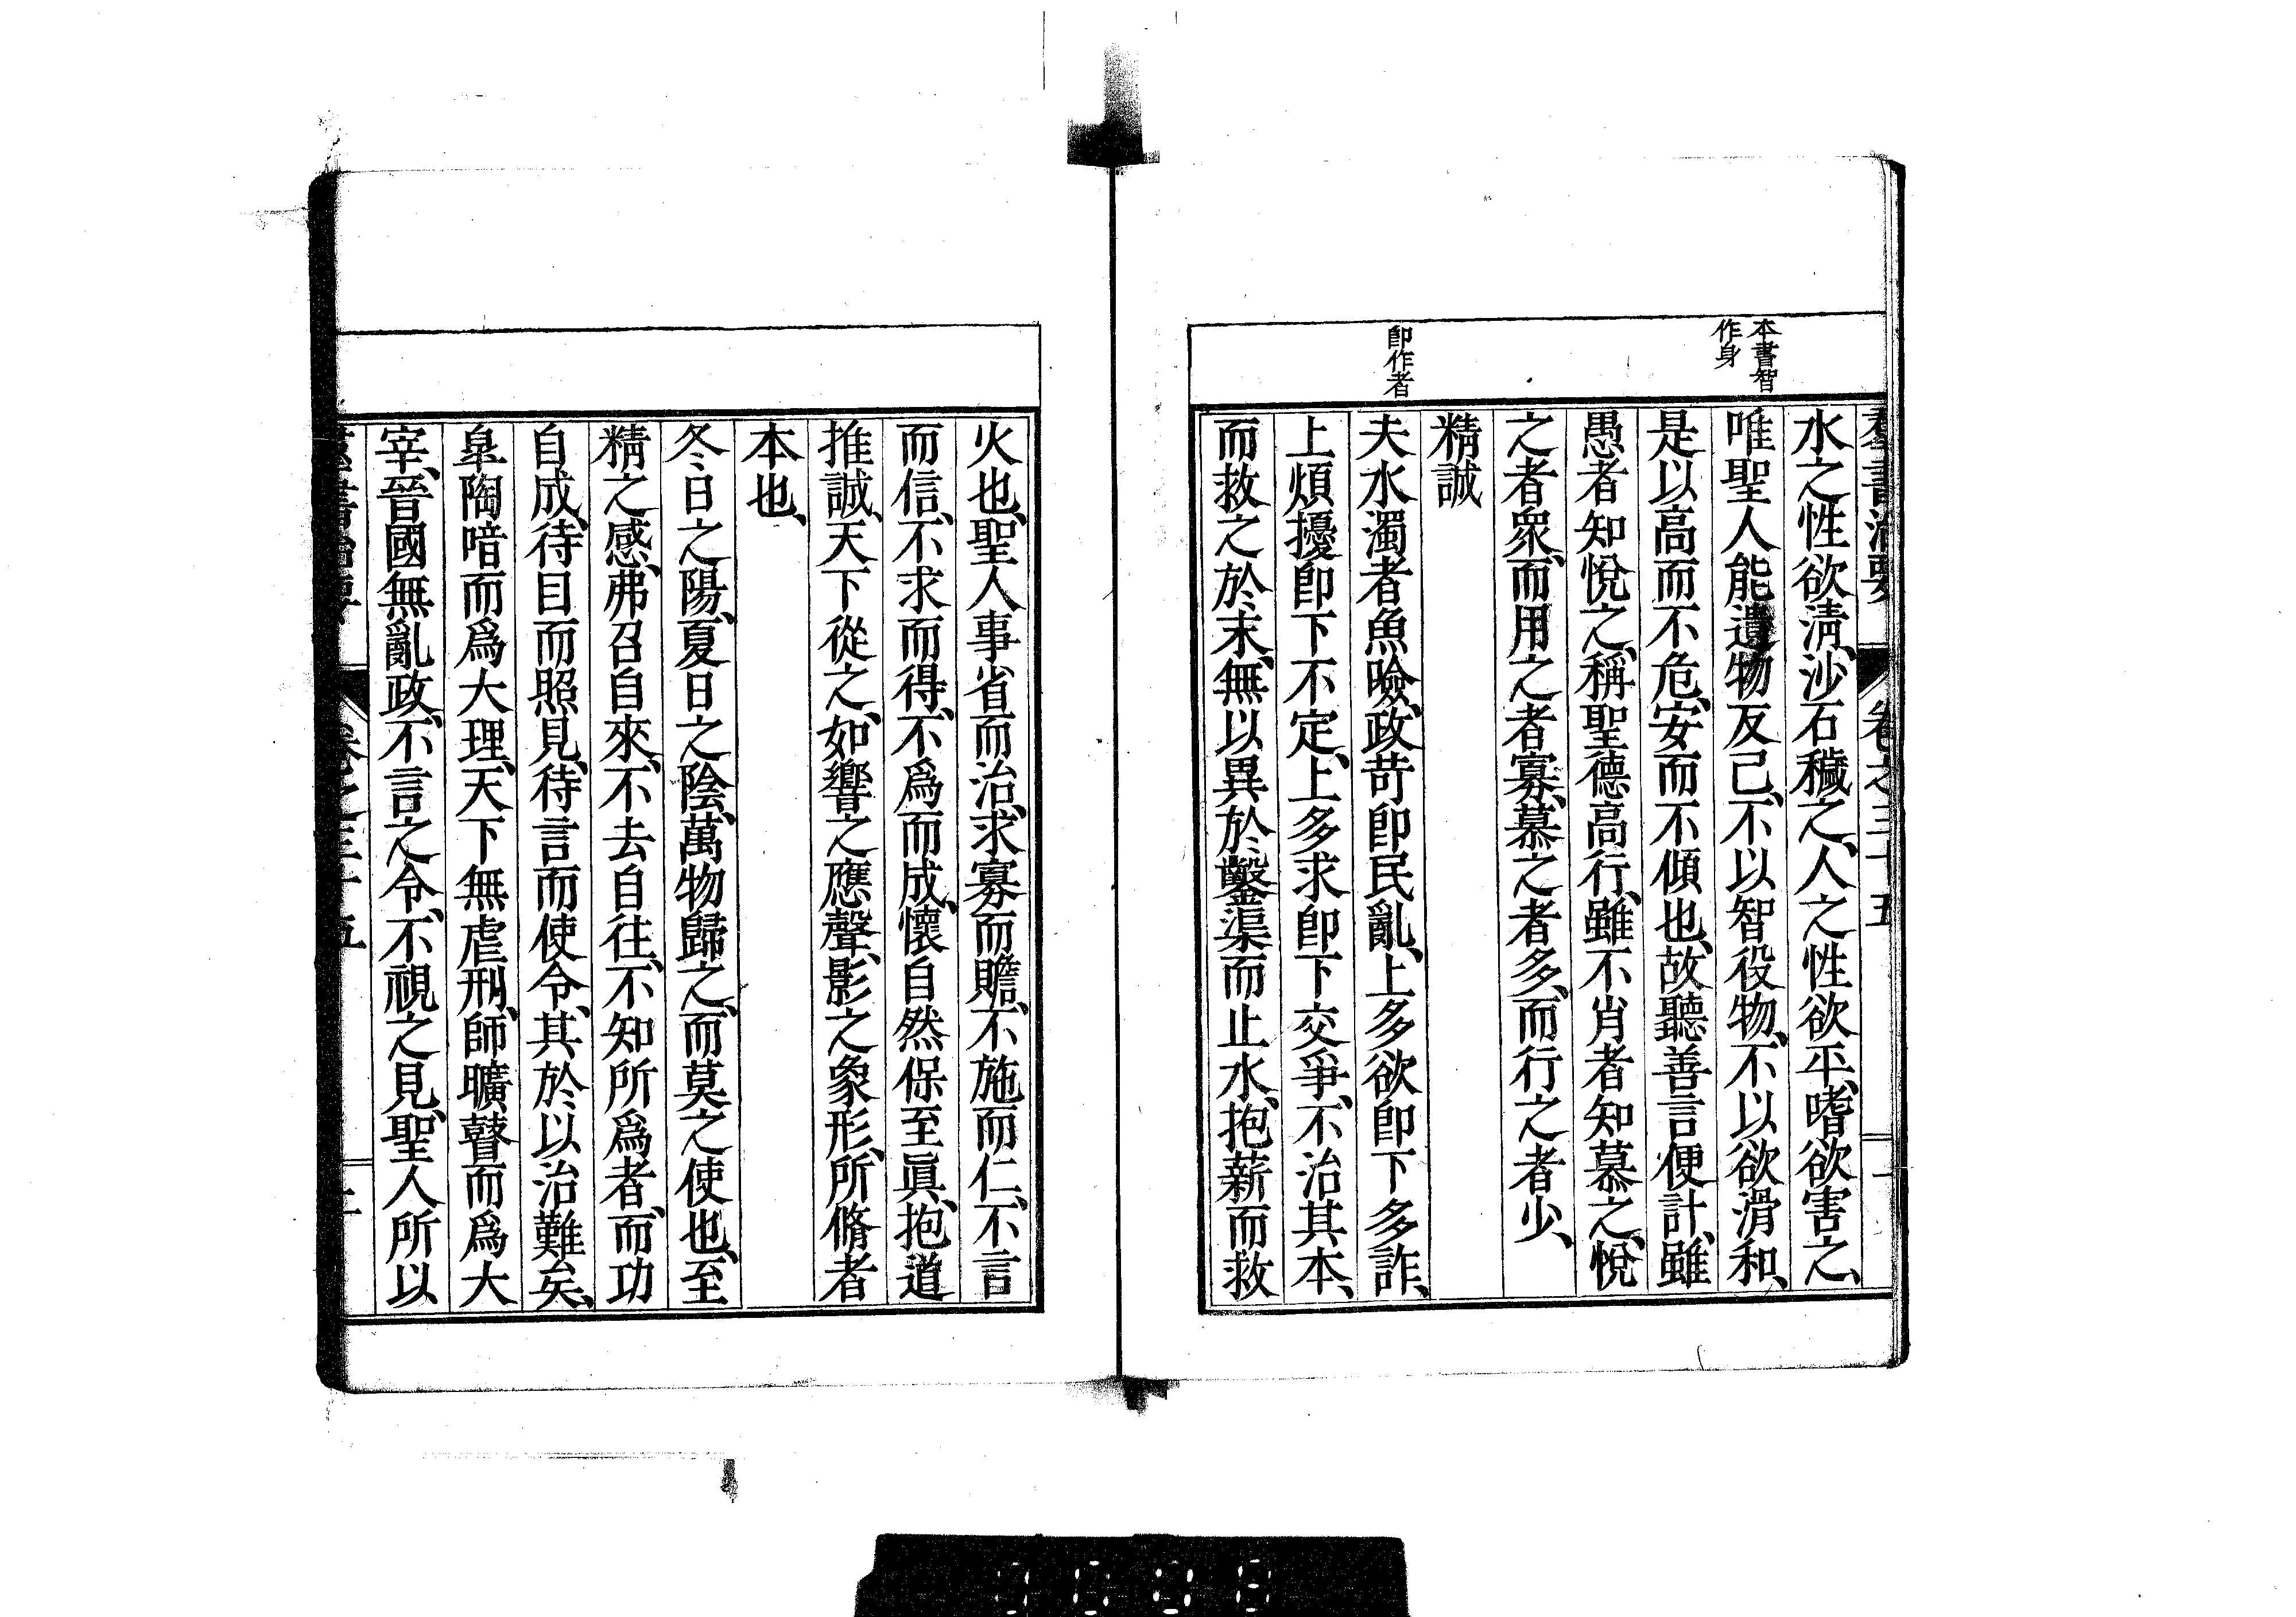 本書智
作身
卽作者
羣書治要 卷之三十五
水之性欲淸、沙石穢之、人之性欲平、嗜欲害之、
唯聖人能遺物反己、不以智役物、不以欲滑和、
是以高而不危、安而不傾也、故聽善言便計、雖
愚者知悅之、稱聖德高行、雖不肖者知慕之、悅
之者衆、而用之者寡、慕之者多、而行之者少、
精誠
夫水濁者魚噞、政苛卽民亂、上多欲卽下多詐、
上煩擾卽下不定、上多求卽下交爭、不治其本、
而救之於末、無以異於鑿渠而止水、抱薪而救
火也、聖人事省而治、求寡而贍、不施而仁、不言
而信、不求而得、不爲而成、懷自然保至眞、抱道
推誠、天下從之、如響之應聲、影之象形、所脩者
本也、
冬日之陽、夏日之陰、萬物歸之、而莫之使也、至
精之感、弗召自來、不去自往、不知所爲者、而功
自成、待目而照見、待言而使令、其於以治難矣、
皐陶喑而爲大理、天下無虐刑、師曠瞽而爲大
宰、晉國無亂政、不言之令、不視之見、聖人所以
羣書治要 卷之三十五